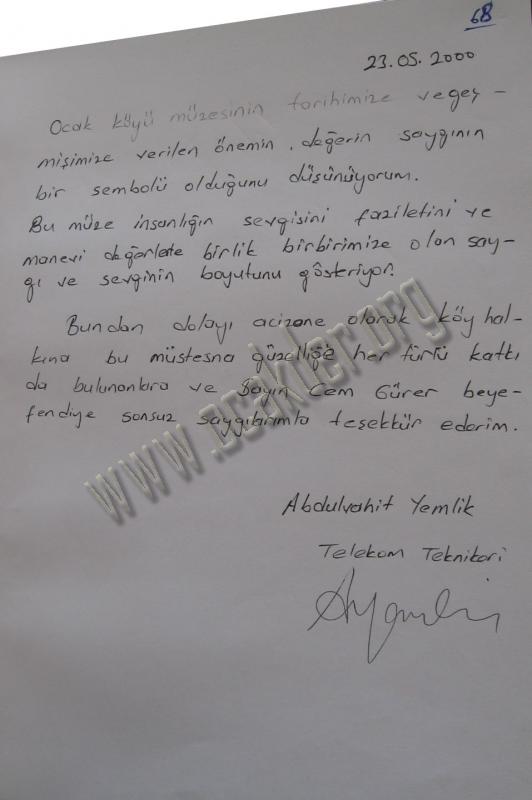 68
23.05.2000
Ocak köyü müzesinin tarihimize ve geç-
mişimize verilen önemin, değerin saygının
bir sembolü olduğunu düşünüyorum.
Bu müze insanlığın sevgisini faziletini ve
manevi değerlerle birlik birbirimize olan say-
gı ve sevginin boyutunu gösteriyor.
Bundan dolayı acizane olarak köy hal-
kına bu müstesna güzelliğe her türlü katkı
da bulunanlara ve Sayın Cem Gürer beye-
fendiye sonsuz saygılarımla teşekkür ederim.
www.ocakler.org
Abdulvahit Yemlik
Telekom Teknikeri